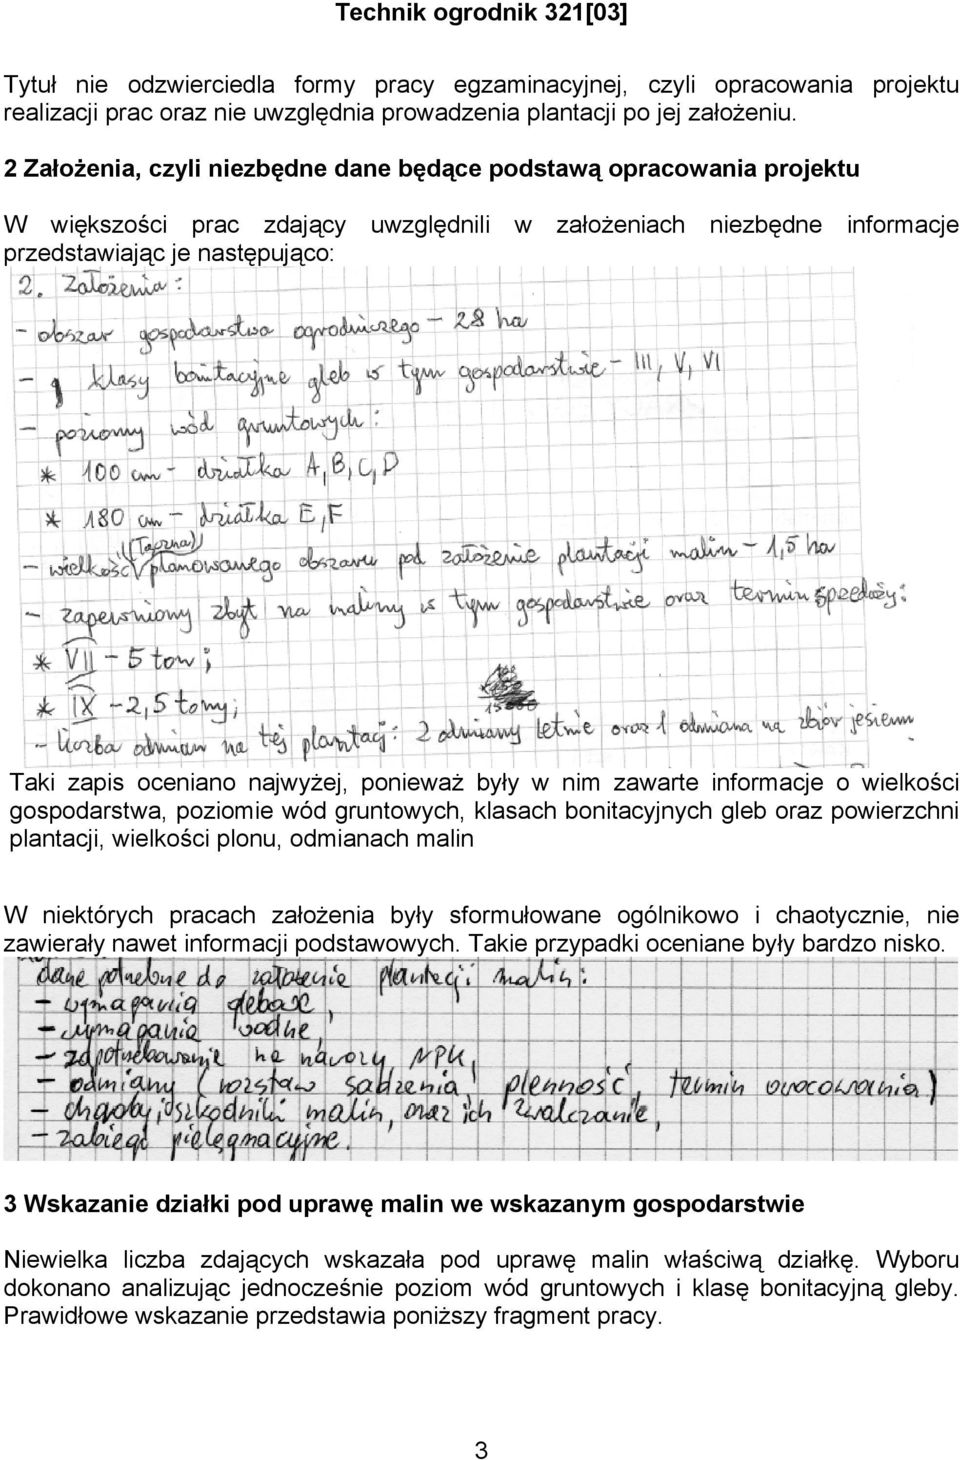 Technik ogrodnik 321[03]
Tytuł nie odzwierciedla formy pracy egzaminacyjnej, czyli opracowania projektu
realizacji prac oraz nie uwzględnia prowadzenia plantacji po jej założeniu.
2 Założenia, czyli niezbędne dane będące podstawą opracowania projektu
W większości prac zdający uwzględnili w założeniach niezbędne informacje
przedstawiając je następująco:
2. Założenia:
- obszar gospodarstwa ogrodniczego - 28 ha
- klasy bonitacyjne gleb w tym gospodarstwie - III, V, VI
- poziomy wód gruntowych:
* 100 cm - działka A, B, C, D
* 180 cm - działka E, F
(łączna)
- wielkość planowanego obszaru pod założenie plantacji malin - 1,5 ha
- zapewniony zbyt na maliny w tym gospodarstwie oraz termin sprzedaży:
* VII - 5 ton;
* IX - 2,5 tony;
- liczba odmian na tej plantacji: 2 odmiany letnie oraz 1 odmiana na zbiór jesienny
Taki zapis oceniano najwyżej, ponieważ były w nim zawarte informacje o wielkości
gospodarstwa, poziomie wód gruntowych, klasach bonitacyjnych gleb oraz powierzchni
plantacji, wielkości plonu, odmianach malin
W niektórych pracach założenia były sformułowane ogólnikowo i chaotycznie, nie
zawierały nawet informacji podstawowych. Takie przypadki oceniane były bardzo nisko.
dane potrzebne do założenie plantacji malin:
- wymagania glebowe,
- wymagania wodne,
- zapotrzebowanie na nawozy NPK,
- odmiany (rozstaw sadzenia, plenność, termin owocowania)
- choroby i szkodniki malin, oraz ich zwalczanie,
- zabiegi pielęgnacyjne.
3 Wskazanie działki pod uprawę malin we wskazanym gospodarstwie
Niewielka liczba zdających wskazała pod uprawę malin właściwą działkę. Wyboru
dokonano analizując jednocześnie poziom wód gruntowych i klasę bonitacyjną gleby.
Prawidłowe wskazanie przedstawia poniższy fragment pracy.
3